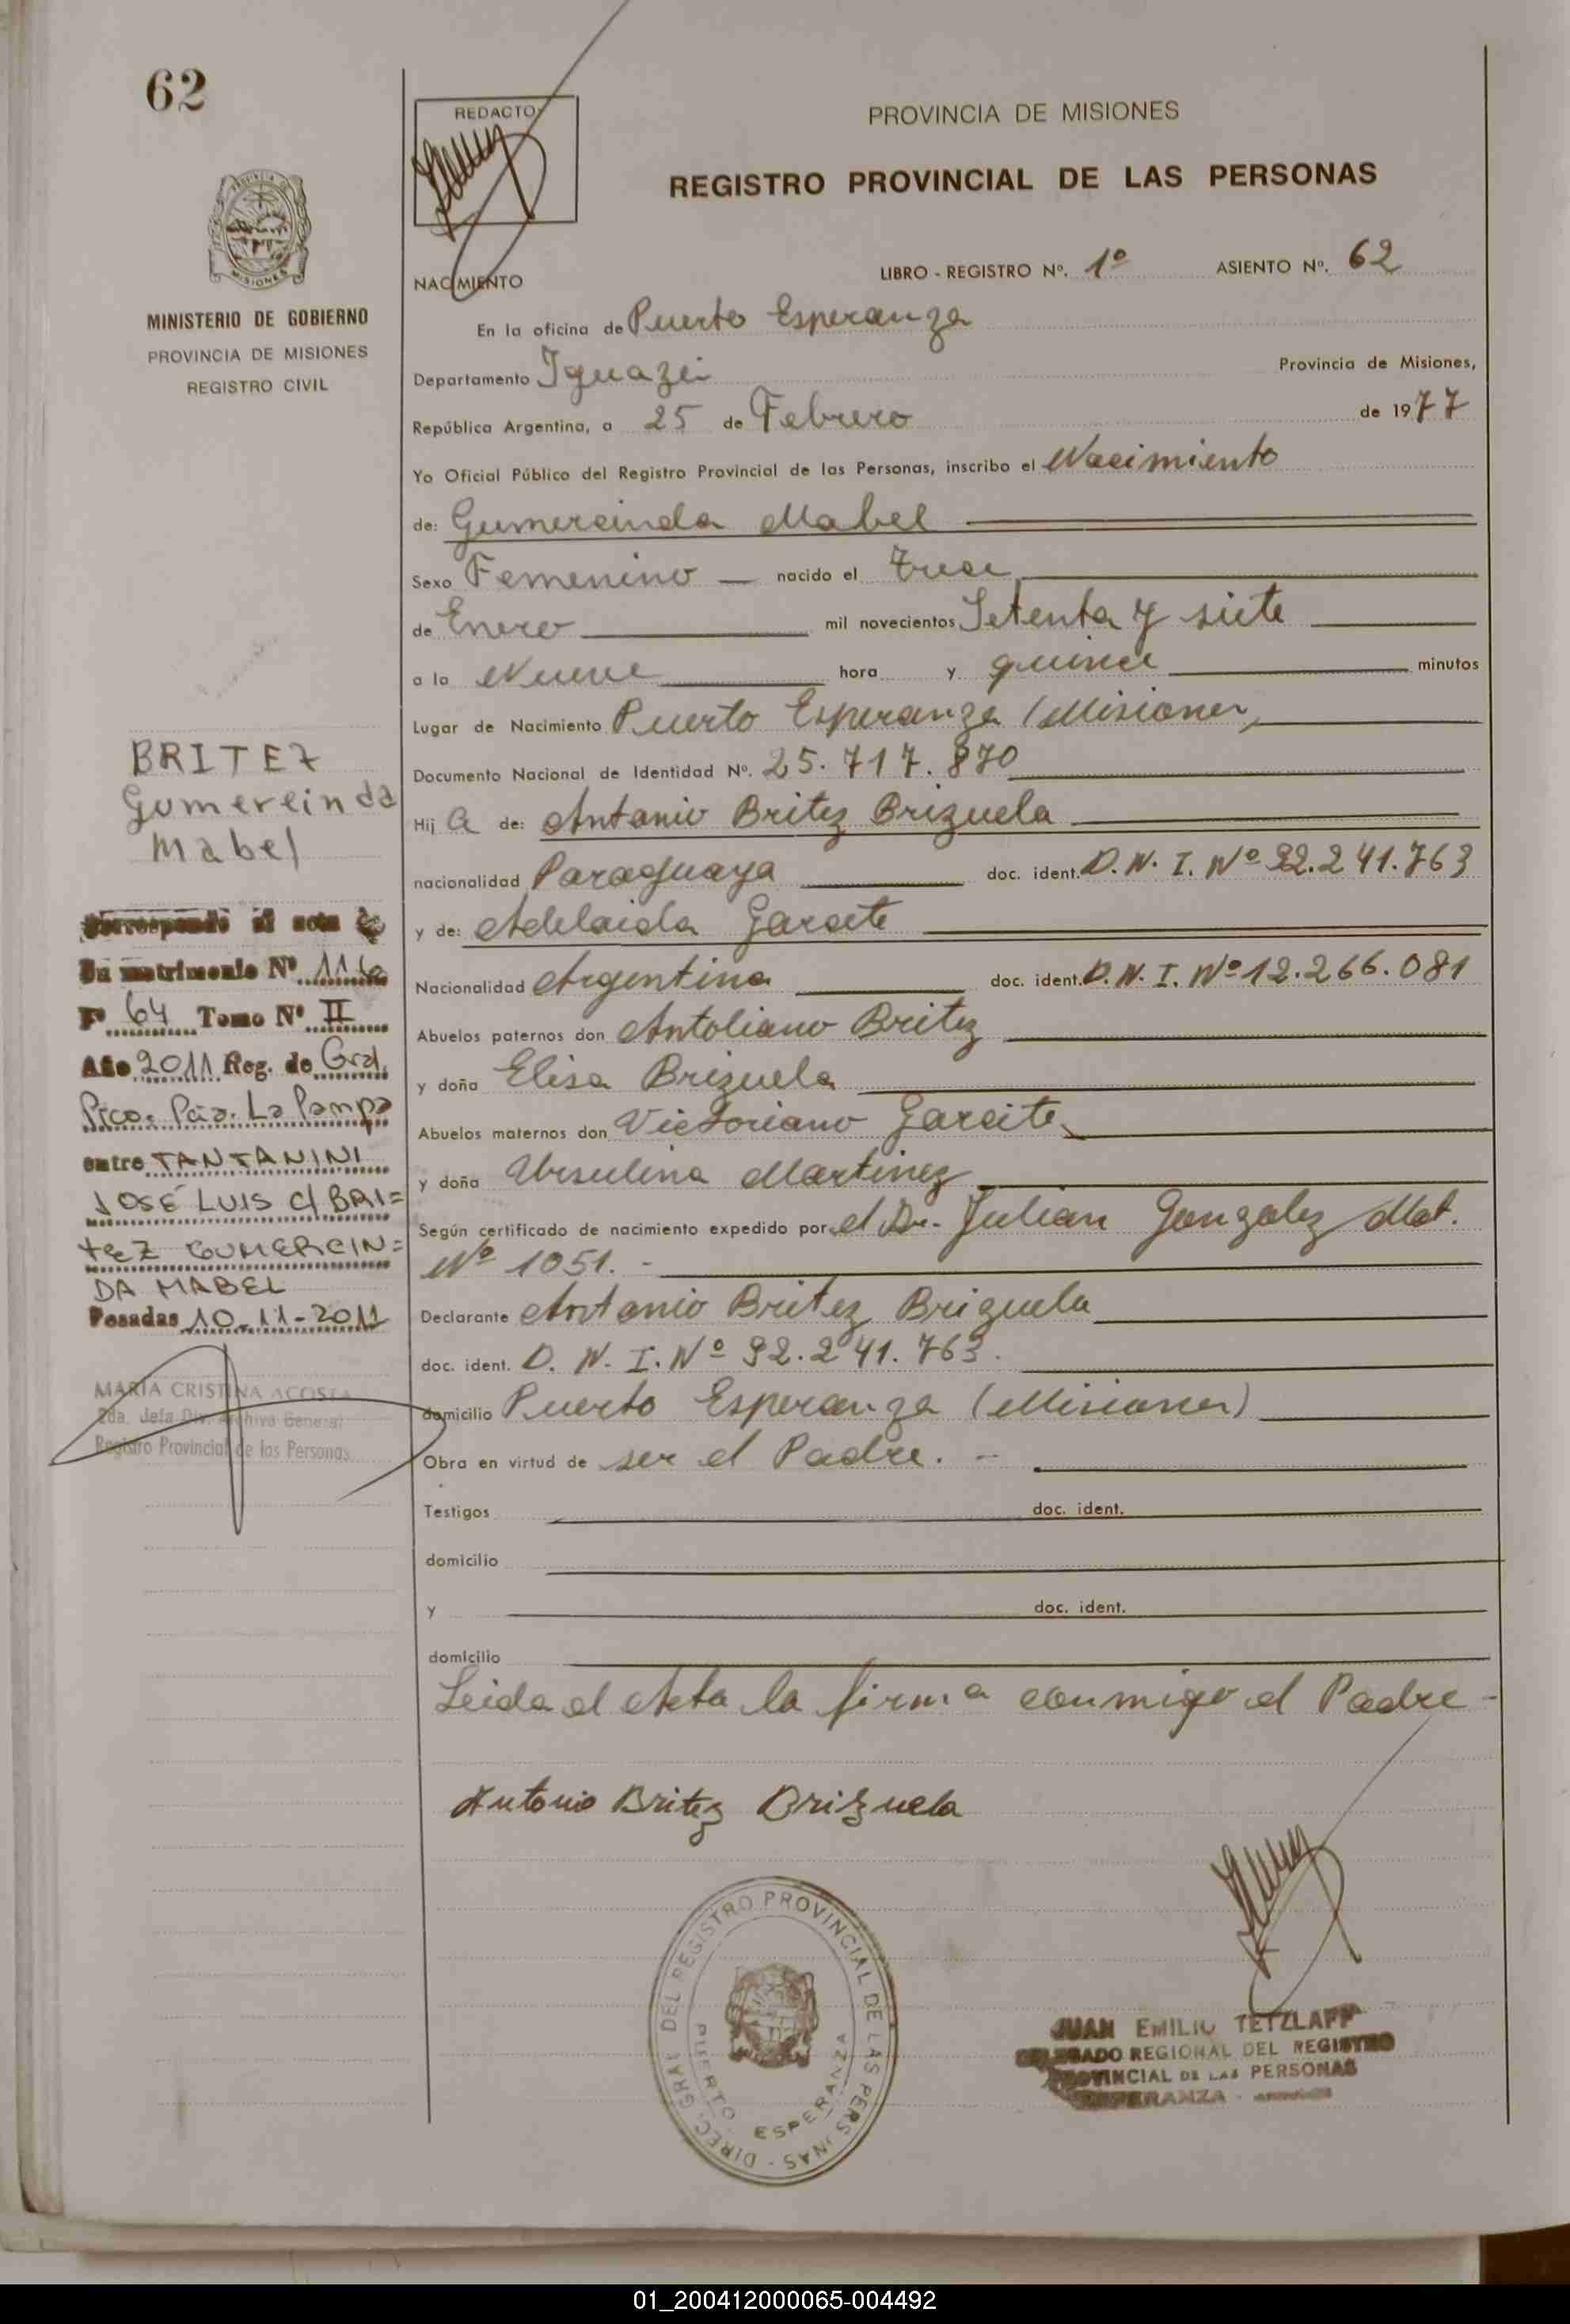 62
REDACTO
PROVINCIA DE MISIONES
REGISTRO PROVINCIAL DE LAS PERSONAS
NACIMIENTO
LIBRO - REGISTRO Nº. 1º ASIENTO Nº. 62
MISIONES
MINISTERIO DE GOBIERNO
PROVINCIA DE MISIONES
REGISTRO CIVIL
En la oficina de Puerto Esperanza
Departamento Iguazú Provincia de Misiones,
República Argentina, a 25 de Febrero de 1977
Yo Oficial Público del Registro Provincial de las Personas, inscribo el Nacimiento
de: Gumercinda Mabel
Sexo Femenino nacido el Trece
de Enero mil novecientos Setenta y siete
a la Nueve hora y quince minutos
Lugar de Nacimiento Puerto Esperanza (Misiones)
Documento Nacional de Identidad Nº. 25.717.870
Hij a de: Antonio Britez Brizuela
nacionalidad Paraguaya doc. ident. D.N.I. Nº 92.241.763
y de: Adelaida Garcete
Nacionalidad Argentina doc. ident. D.N.I. Nº 12.266.081
Abuelos paternos don Antoliano Britez
y doña Elisa Brizuela
Abuelos maternos don Victoriano
y doña Ursulina Martinez
Según certificado de nacimiento expedido por el Dr. Julian Gonzalez Mat.
Nº 1051. -
Declarante Antonio Britez Brizuela
doc. ident. D.N.I. Nº 92.241.763.
domicilio Puerto Esperanza (Misiones)
Obra en virtud de ser el Padre. -
Testigos doc. ident.
domicilio
y doc. ident.
domicilio
Leida el Acta la firma conmigo el Padre -
Antonio Britez Brizuela
BRITEZ
Gumercinda
Mabel
Corresponde al acta de
Un matrimonio Nº 116
Fº 64 Tomo Nº II
Año 2011 Reg. de Gral.
Pico. Pcia. La Pampa
entre TANTANINI
JOSÉ LUIS C/ BRI=
tEZ GUMERCIN=
DA MABEL
Posadas 10-11-2011
MARIA CRISTINA ACOSTA
2da. Jefa Div. Archivo General
Registro Provincial de las Personas
DIREC. GRAL DEL REGISTRO PROVINCIAL DE LAS PERSONAS -
PUERTO ESPERANZA
JUAN EMILIO TETZLAFF
DELEGADO REGIONAL DEL REGISTRO
PROVINCIAL DE LAS PERSONAS
ESPERANZA -
01_200412000065-004492